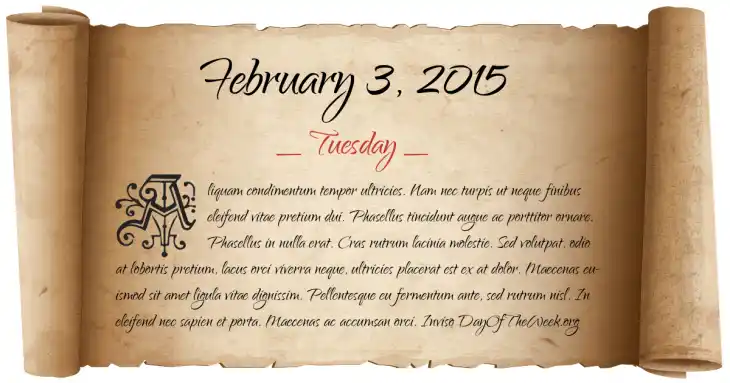 February 3, 2015
_ Tuesday _
Aliquam condimentum tempor ultricies. Nam nec turpis ut neque finibus
eleifend vitae pretium dui. Phasellus tincidunt augue ac porttitor ornare.
Phasellus in nulla erat. Cras rutrum lacinia molestie. Sed volutpat, odio
at lobortis pretium, lacus orci viverra neque, ultricies placerat est ex at dolor. Maecenas eu-
ismod sit amet ligula vitae dignissim. Pellentesque eu fermentum ante, sed rutrum nisl. In
eleifend nec sapien et porta. Maecenas ac accumsan orci. Invisq DayOfTheWeek.org